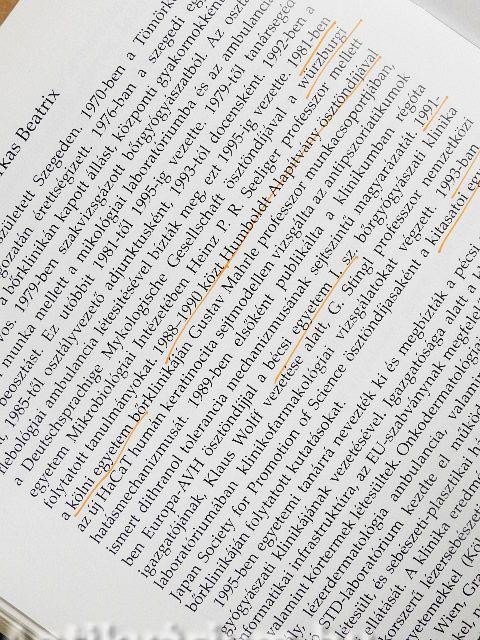 kas Beatrix
született Szegeden. 1970-ben a Tömörk
gozatán érettségizett. 1976-ban a szegedi eg
a bőrklinikán kapott állást központi gyakornokként
vos. 1979-ben szakvizsgázott bőrgyógyászatból. Az oszt
munka mellett a mikológiai laboratóriumba és az ambulanciá
pocosztást. Ez utóbbit 1981-től 1995-ig vezette. 1979-től tanársegéd
, 1985-től osztályvezető adjunktusként, 1993-tól docensként. 1992-ben a
flebológiai ambulancia létesítésével bízták meg, ezt 1995-ig vezette. 1981-ben
a Deutschsprachige Mykologische Gesellschaft ösztöndíjával a würzburgi
egyetem Mikrobiológiai Intézetében Heinz P. R. Seeliger professzor mellett
folytatott tanulmányokat, 1988–1990 közt Humboldt-Alapítvány ösztöndíjával
a kölni egyetem bőrklinikáján Gustav Mahrle professzor munkacsoportjában,
az új HaCaT humán keratinocita sejtmodellen vizsgálta az antipszoriatikumok
hatásmechanizmusát. 1989-ben elsőként publikálta a klinikumban régóta
ismert dithranol tolerancia mechanizmusának sejtszintű magyarázatát. 1991-
ben Europa-AVH ösztöndíjjal a bécsi egyetem I. sz. bőrgyógyászati klinika
igazgatójának, Klaus Wolff vezetése alatt, G. Stingl professzor nemzetközi
laboratóriumában klinikofarmakológiai vizsgálatokat végzett. 1993-ban
Japan Society for Promotion of Science ösztöndíjasaként a kitasatoi egy
bőrklinikáján folytatott kutatásokat.
1995-ben egyetemi tanárrá nevezték ki és megbízták a pécsi
gyógyászati klinikájának vezetésével. Igazgatósága alatt a k
nformatikai infrastruktúra, az EU-szabványnak megfelel
valamint kórtermek létesültek. Onkodermatológiai
, lézerdermatológia ambulancia, valami
STD-laboratórium kezdte el működ
létesült, és sebészeti-plasztikai b
ellátását. A klinika eredm
korszerű lézersebész
etemekkel (Kö
Wien, Gra